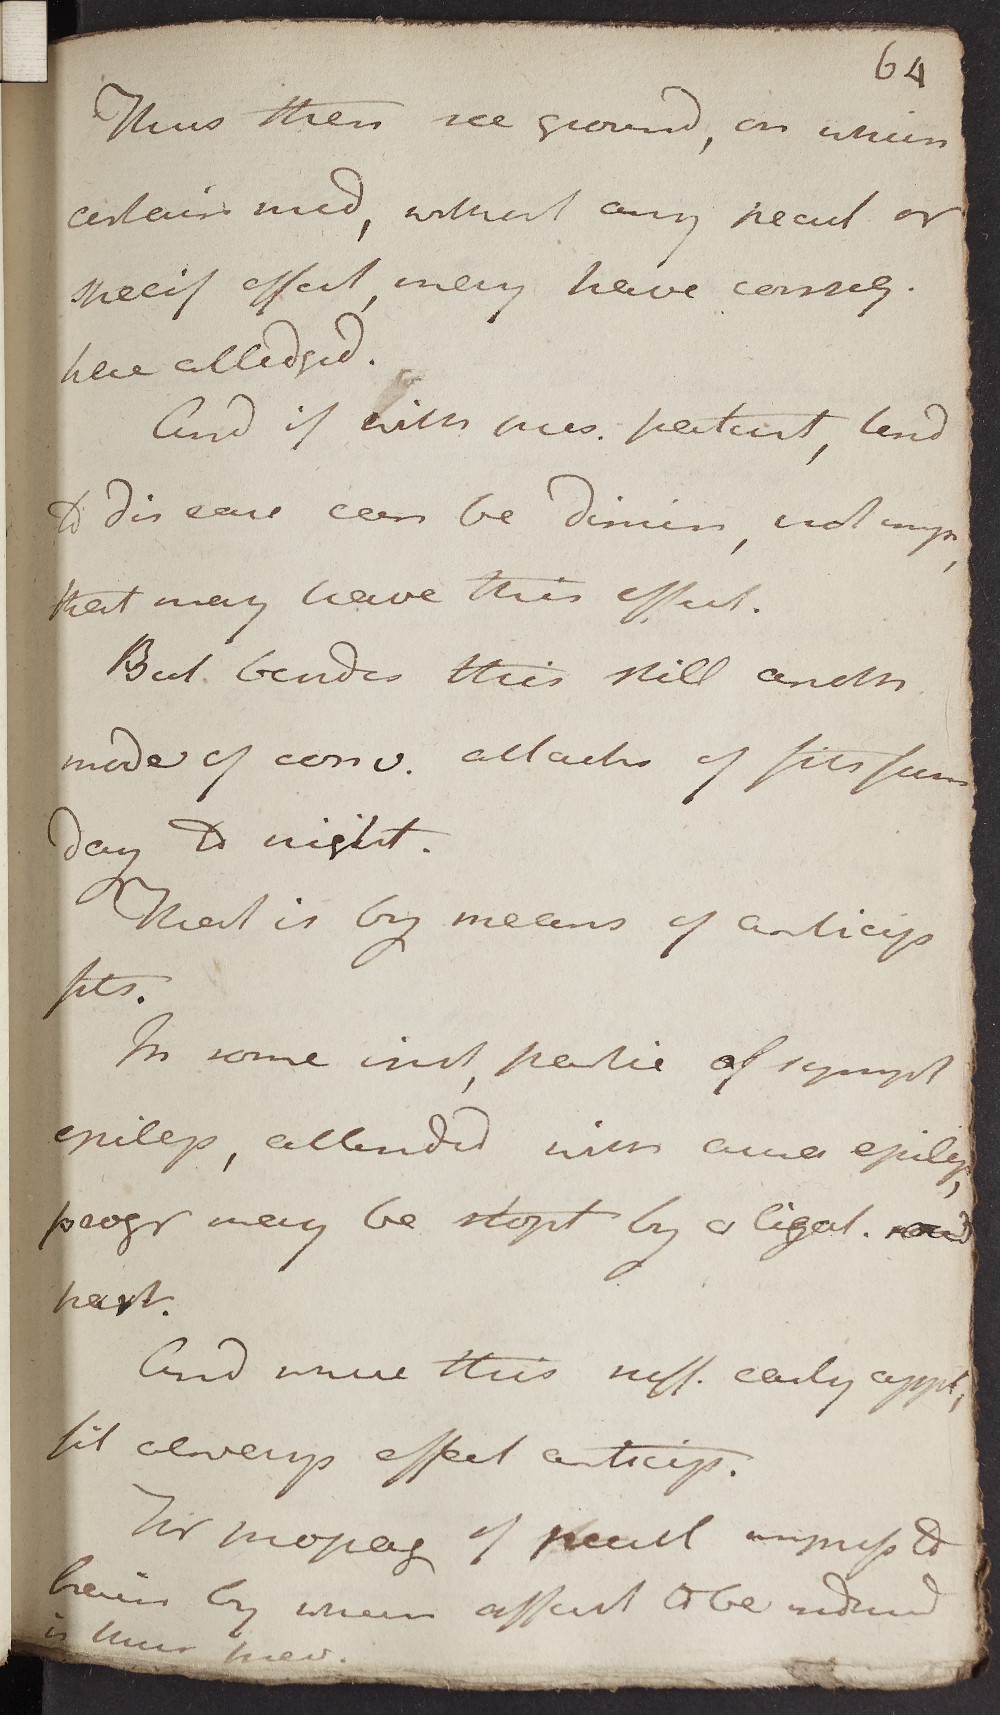 64
Thus then see ground, on which
certain med, without any pecul or
specif effect, may have conseq.
here alledged.
And if with pres. patient, tend
to disease can be dimin, not imp,
that may have this effect.
But besides this still anoth
mode of conv. attacks of fits from
day to night.
That is by means of anticip
fits.
In some inst, partic of sympt
epilep, attended with aura epilep,
progr may be stopt by a ligat.
part.
And where this suff. early appl,
fit always effect anticip.
For propag of pecul impress to
brain by which affect to be induced
is thus prev.